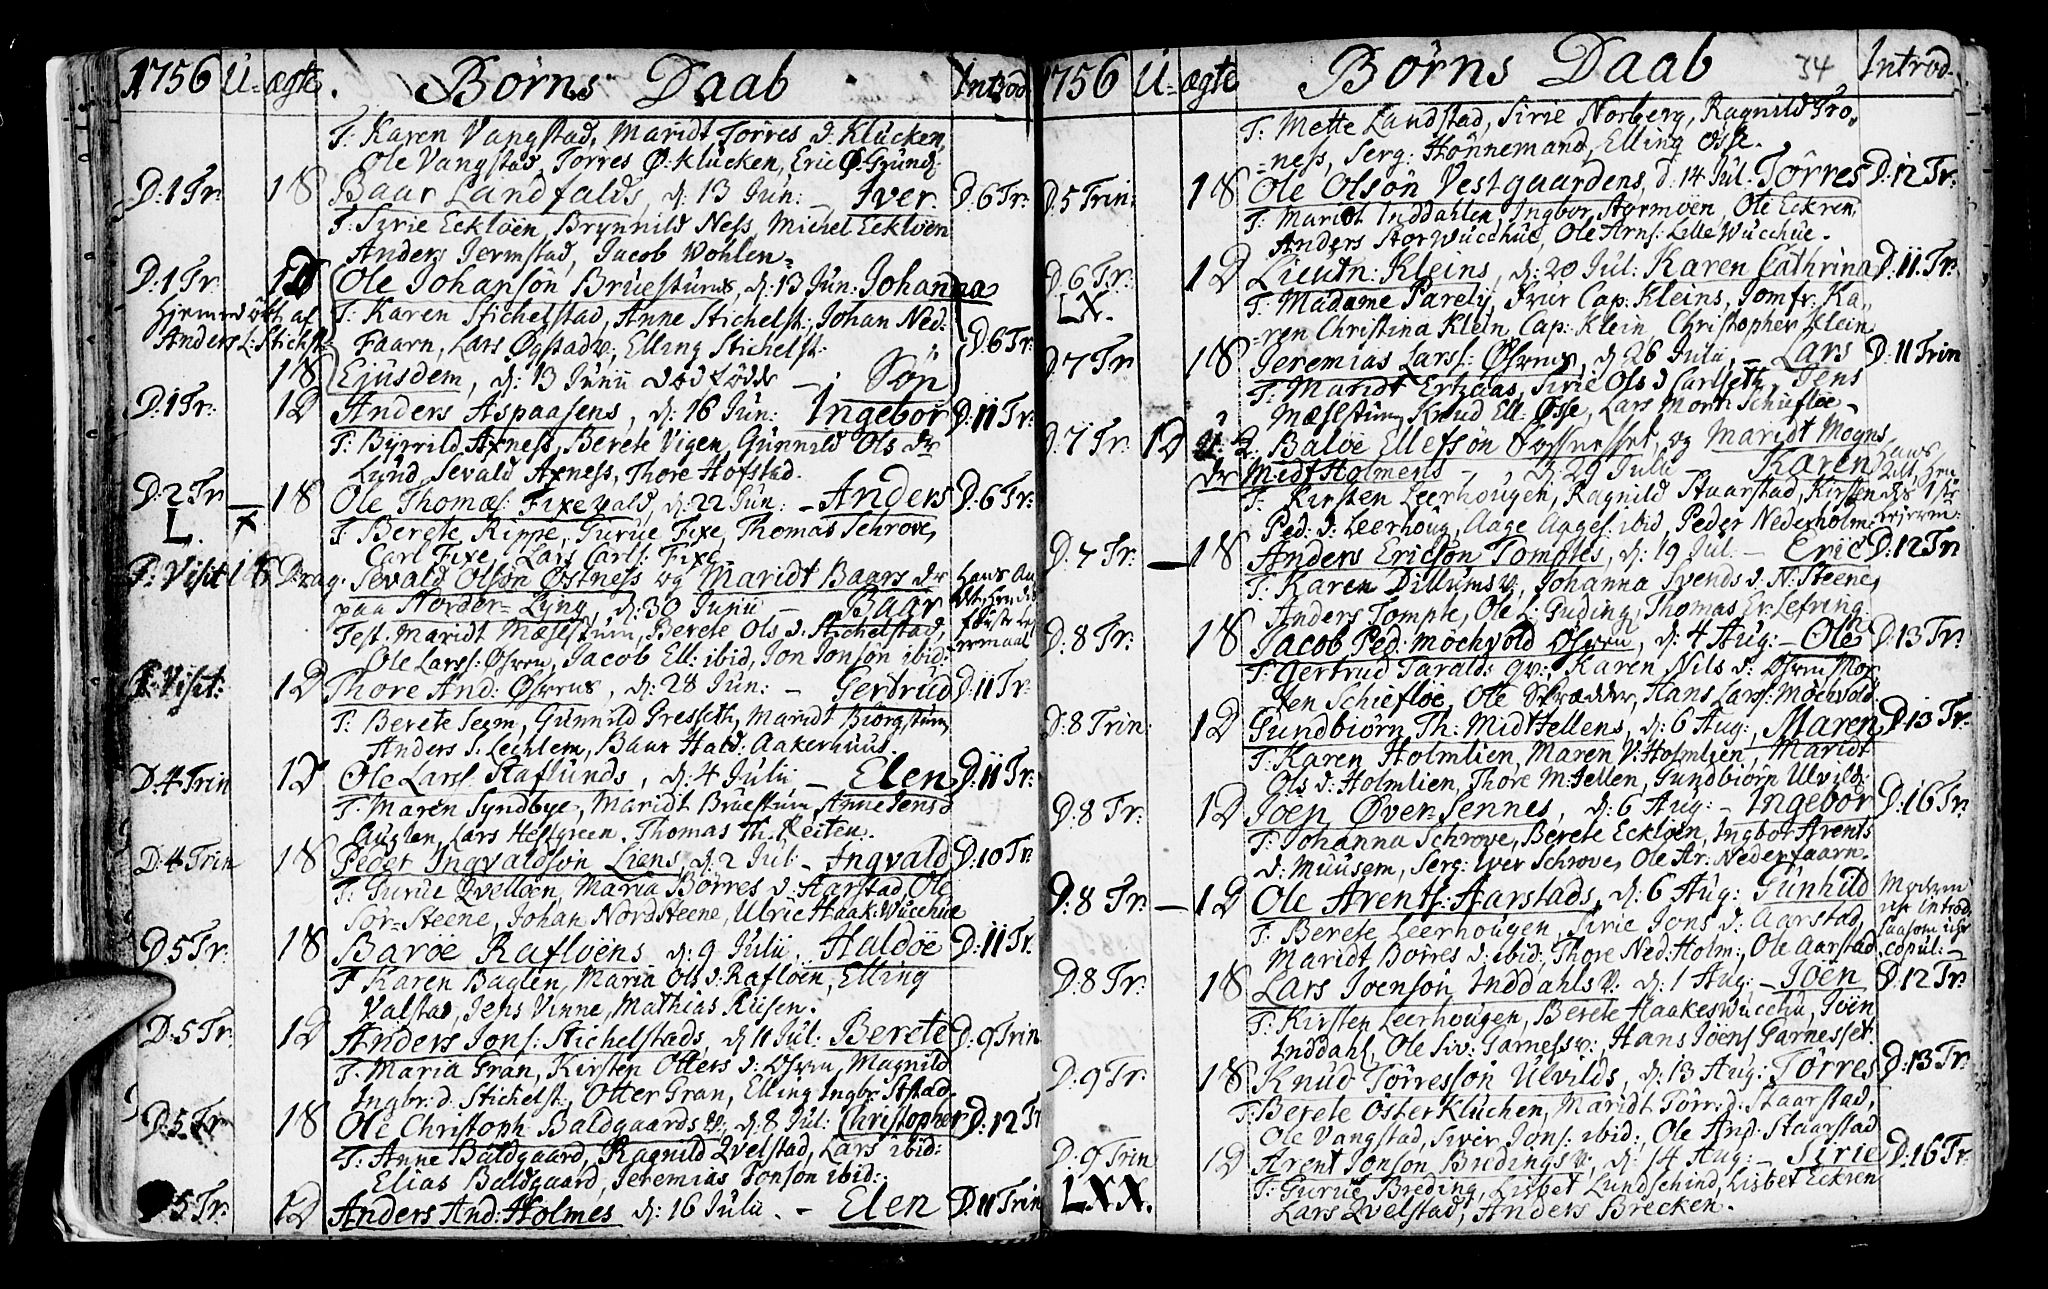 1756 U- ægte. Börns Daab Introd
T: Karen Vangstad, Maridt Törres d. Klucken,
Ole Vangstad, Torres Ø: Klucken, Eric Ø: Grund:
D: 1 Tr: 18 Baar Landfalds, d: 13 Jun: – Iver. D: 6 Tr:
T: Sirie Ecklöen, Brynnild Ness, Michel Ecklöen
Anders Jermstad, Jacob Wohlen.
D: 1 Tr. 1D Ole Johansön Bruesturns, d: 13 Jun: Johanna
Hjemmedöbt af T: Karen Stichelstad, Anne Stichelst:, Johan Ned-
Anders L: Stichst: Faarn, Lars Øgstadv:, Elling Stichelst: D: 6 Tr:
18 Ejusdem, d: 13 Junii dödfödde – Sön
D: 1 Tr: 12 Anders Aspaasens, d: 16 Jun: Ingebor D: 11 Tr:
T: Byrrild Axness, Berete Vigen, Gunnild Ols dr
Lund, Sevald Axness, Thore Hofstad.
D: 2 Tr – 18 Ole Thomæs: Fixevald, d: 22 Jun: – Anders D: 6 Tr:
L. x T: Berete Rippe, Gurue Fixe, Thomas Schrove,
Carl Fixe, Lars Carls: Fixe.
D: Visit 18 Drag. Sevald Olsön Østness og Maridt Baars dr Hans An
paa Nordor-Lÿng, d: 30 Junii – Baar det, hendes
Test. Maridt Mæhlstum, Berete Ols d. Stichelstad, förste Le
Ole Larss: Øsren, Jacob Ell: ibid, Jon Jonsön ibid: jermaal
D: Visit: 12 Thore And: Øsrens, d: 28 Jun: – Gertrud D: 11 Tr:
T: Berete Seem, Gunnild Gresseth, Maridt Biörgstum,
Anders S. Lechlem, Baar Hald: Aakerhuus.
D: 4 Trin 12 Ole Larss. Raflunds, d: 4 Julii – Elen D: 11 Tr:
T: Maren Syndbye, Maridt Bruestum, Anne Jens d
Auglen, Lars Hellgreen, Thomas Th. Reiten.
D: 4 Trin 18 Peder Ingvaldsön Liens, d: 2 Jul: – Ingvald D: 10 Tr
T: Gurue Qvellöen, Maria Börres d: Aarstad, Ole
Sör-Steene, Johan NordSteene, Ulric Haak: Wucchue
D: 5 Tr. 18 Baroe Raflöens d: 9 Julii, Haldoe D: 11 Tr.
T: Karen Baglen, Maria Ols d: Raflöen, Elling
Valstad, Jens Vinne, Mathias Riisen.
D: 5 Tr. 12 Anders Jons: Stichelstads, d: 11 Jul: Berete D: 9 Trin
T: Maria Gran, Kirsten Otters d: Øsren, Magnild
Ingbr: d. Stichelst:, Otter Gran, Elling Ingbr: Ststad
D: 5 Tr 18 Ole Christoph: Baldgaards v:, d: 8 Jul: Christopher D: 12 Tr
T: Anne Baldgaard, Ragnild Qvelstad, Lars ibid:
Elias Baldgaard, Jeremias Jonson ibid:
D: 5 Tr. 12 Anders And: Holmes d: 16 Julii. – Elen D: 11 Trin
1756 U- ægte Börns Daab 34 Introd.
T: Mette Landstad, Sirie Norberg, Ragnild Tro-
-ness, Serg: Hönnemand, Elling Osse.
D: 5 Trin: 18 Ole Olsön Vestgaardens, d: 14 Jul: Törres D: 12 Tr.
T: Maridt Inddahlen, Ingbor Stormoen, Ole Eckren,
Anders StorWucchue, Ole Arns: LilleWucchue.
D: 6 Tr: 12 Lieutn: Kleins, d: 20 Jul: Karen Cathrina D: 11. Tr.
LX. T: Madame Parelÿ, Frur Cap: Kleins, Jomfr. Ka-
ren Christina Klein, Cap: Klein, Christopher Klein
D: 7 Tr 18 Jeremias Larss: Øsrens d: 26 Julii, – Lars D: 11 Trin
T: Maridt Ertzaas, Sirie Ols d Carlseth, Jens
Mæhlstum, Knud Ell: Øsse, Lars Mortn Schiefloe –
D: 7 Tr: 12 Baloe Ellefsön Fossnesset, og Maridt Mogns Hans
dr MidtHolmens –, d: 29 Julii – Karen 2det, hen
T: Kirsten Leerhougen, Ragnild Staarstad, Kirsten des 1ste
Ped: d: Leerhoug, Aage Aages: ibid, Peder Nederholm: Lejerm:
D: 7 Tr: – 18 Anders Ericsön Tomptes, d: 19 Jul: – Eric D: 12 Tr
T: Karen Dillums v:, Johanna Svends d: N: Steene,
Anders Tompte, Ole L: Guding, Thomas Er: Lefring.
D: 8 Tr: 18 Jacob Ped: Mochvold Øsren, d: 4 Aug: – Ole D: 13 Tr:
T: Gertrud Taralds: qv:, Karen Nils d: Øsren, Mor-
ten Schiefloe, Ole Skrædder, Hans Larss: Mochvold.
D: 8 Trin: 12 Gundbiörn Th: MidtHellens, d: 6 Aug: Maren D: 13 Tr.
T: Karen Holmlien, Maren V: Holmlien, Maridt
Ols d: Holmlien, Thore M: Jellen, Gundbiörn Ulvild:
D: 8 Tr: 12 Joen Øver-Sennes, d: 6 Aug: – Ingebor D: 16 Tr.
T: Johanna Schrove, Berete Ecklöen, Ingbor Arents
d: Muusem, Serg: Iver Schrove, Ole Ar: Nederfaarn.
D: 8 Tr. – 12 Ole Arents: Aarstads, d: 6 Aug: Gunhild Modern
T: Berete Leerhougen, Sirie Jons d: Aarstad, ur introd
Maridt Börres d: ibid:, Thore Ned: Holm:, Ole Aarstad saasom ichr copul: –
D: 8 Tr: 18 Lars Joensön Inddahls v: d: 1 Aug: – Joen D: 12 Tr:
T: Kirsten Leerhougen, Berete HaakesWucchu, Joen
Inddahl, Ole Siv: Garness v:, Hans Joens Garnesset.
D: 9 Tr. 18 Knud Törressön Ulvilds, d: 13 Aug: Törres D: 13 Tr.
T: Berete ÖsterKluchen, Maridt Törr: d. Staarstad,
Ole Vangstad, Siver Jons: ibid:, Ole And: Staarstad
D: 9 Trin 12 Arent Jonson Bredings v:, d: 14 Aug: – Sirie D: 16 Tr.
LXX. T: Gurue Breding, Lisbet Lundschind, Lisbet Eckren
Lars Qvelstad, Anders Brecken.